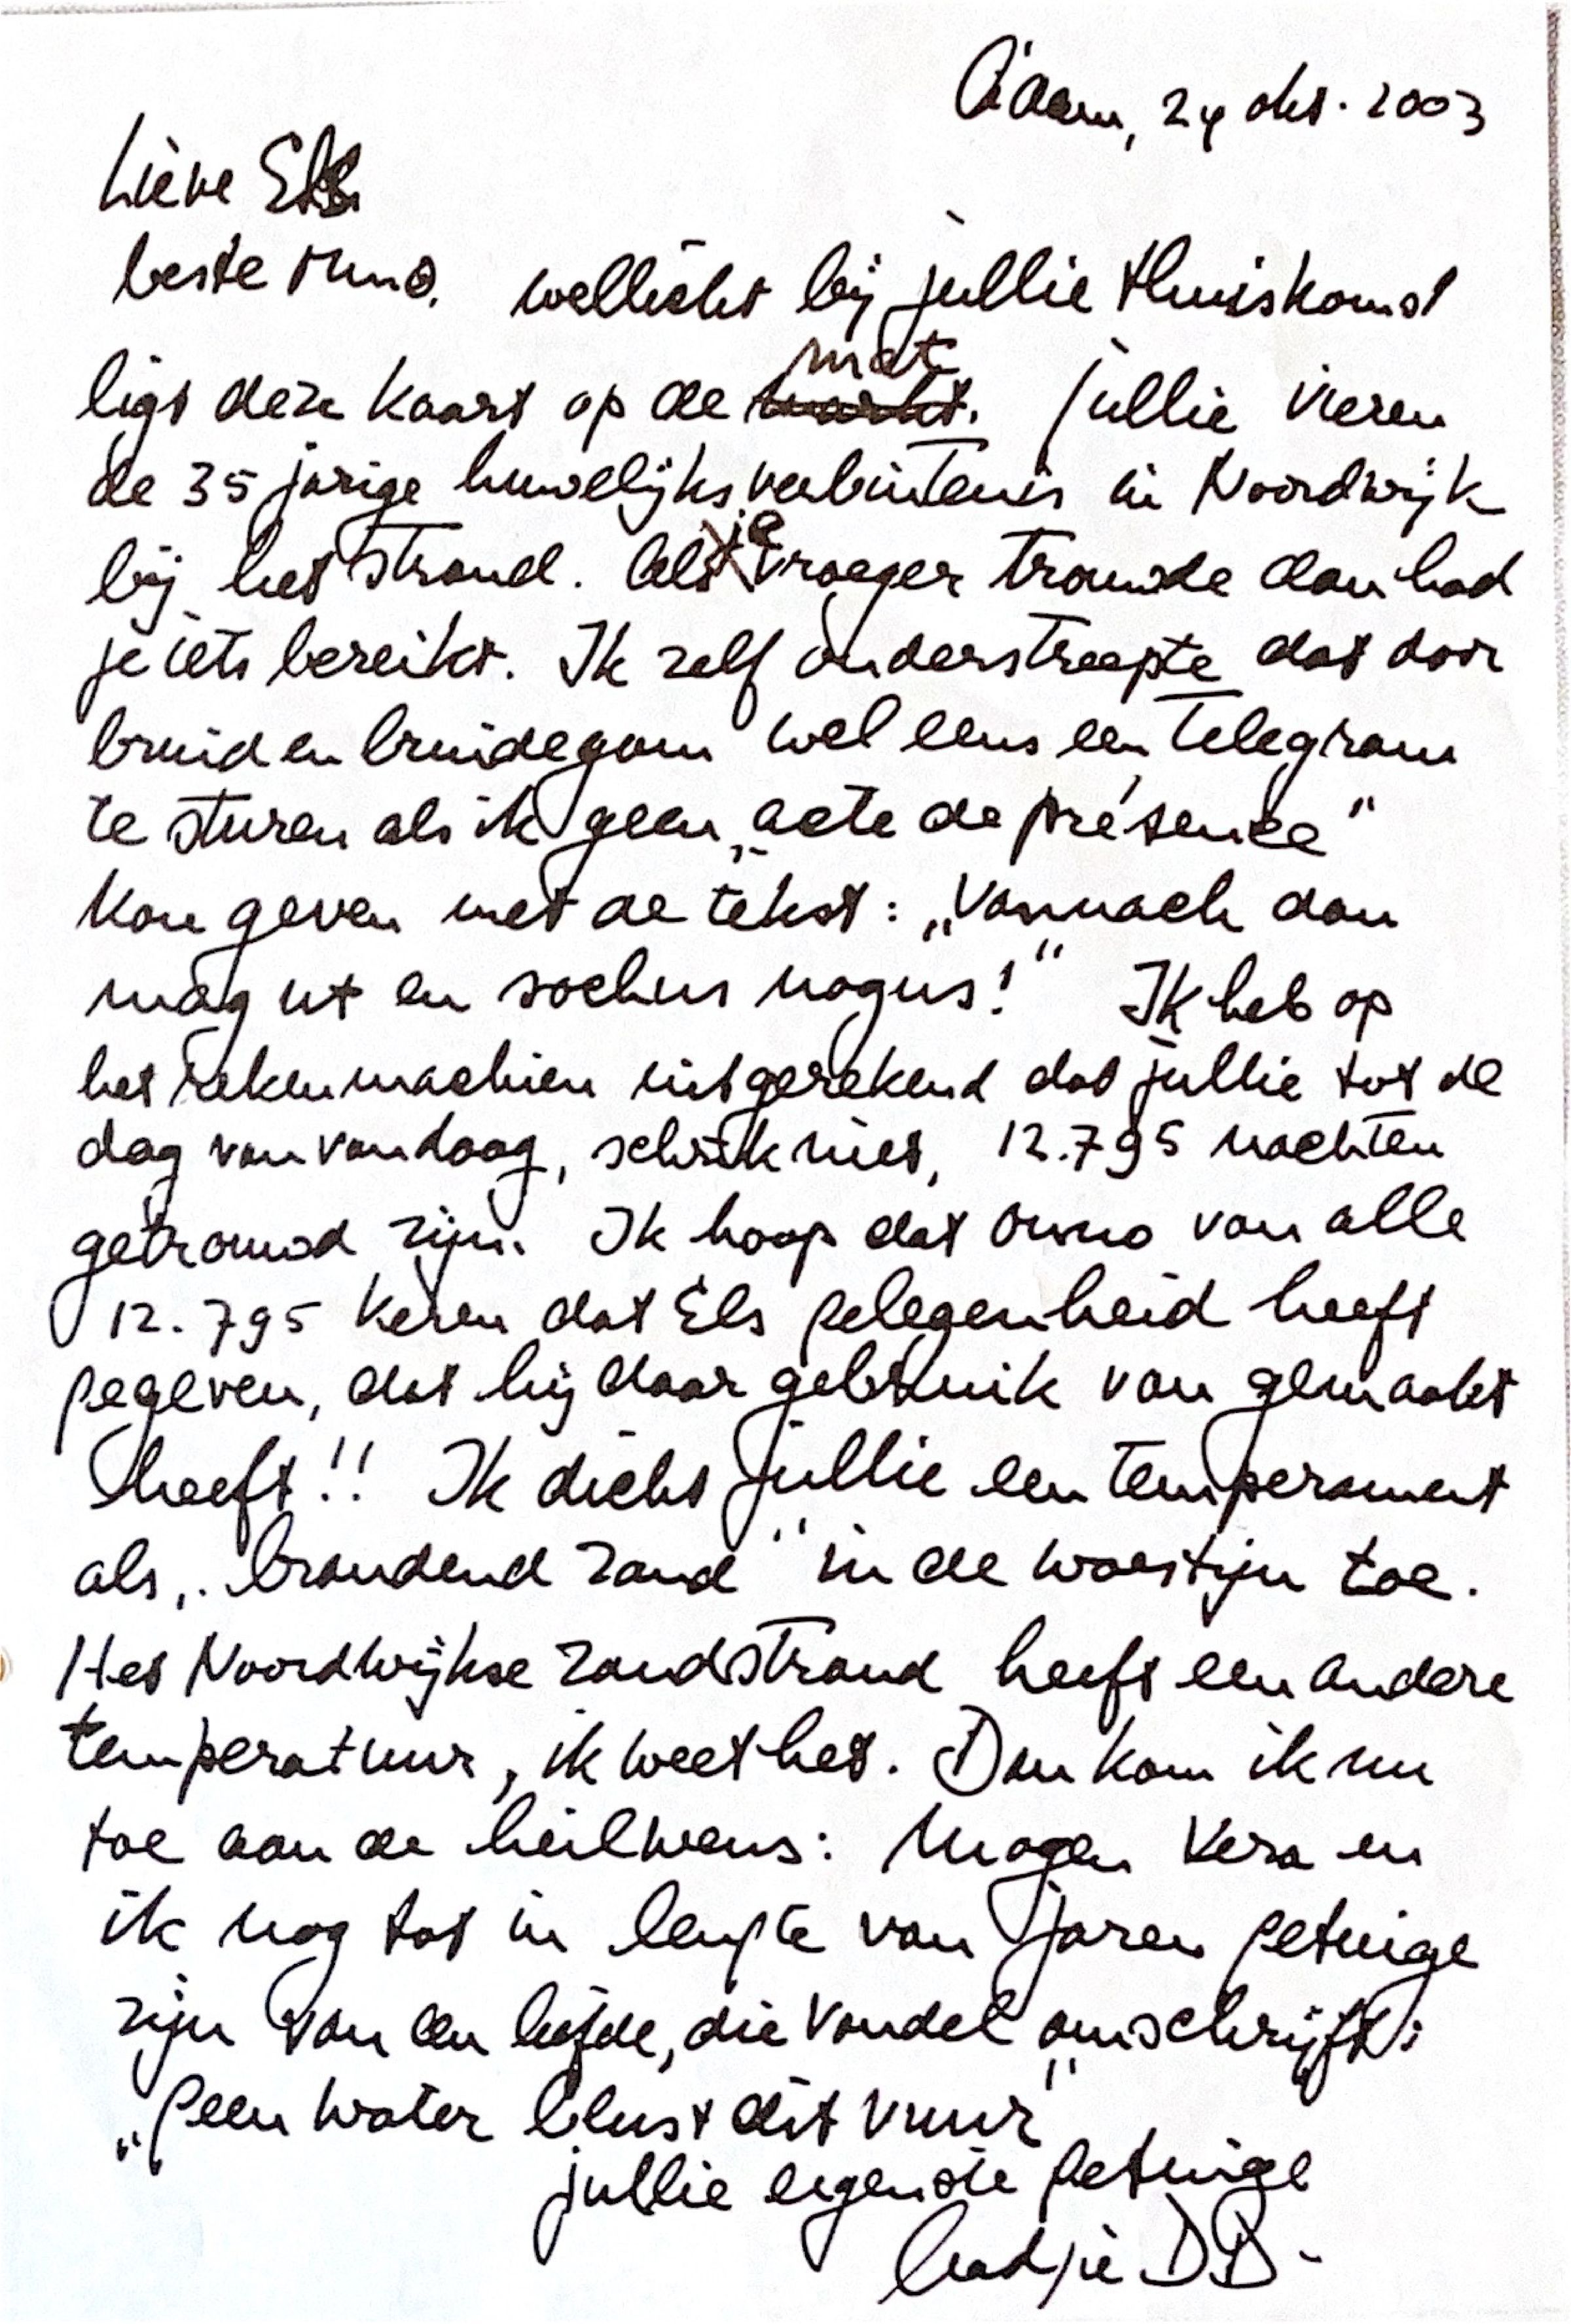 A'dam, 24 okt. 2003
Lieve Els
beste Onno. wellicht bij jullie thuiskomst
ligt deze kaart op de mat. jullie vieren
de 35 jarige huwelijksverbintenis in Noordwijk
bij het strand. Als je vroeger trouwde dan had
je iets bereikt. Ik zelf onderstreepte dat door
bruid en bruidegom wel eens een telegram
te sturen als ik geen „acte de présence"
kon geven met de tekst: „Vannach dan
mag ut en sochus nogus!" Ik heb op
het rekenmachien uitgerekend dat jullie tot de
dag van vandaag, schrik niet, 12.795 nachten
getrouwd zijn. Ik hoop dat Onno van alle
12.795 keren dat Els gelegenheid heeft
gegeven, dat hij daar gebruik van gemaakt
heeft!! Ik dicht jullie een temperament
als „brandend zand" in de woestijn toe.
Het Noordwijkse zandstrand heeft een andere
temperatuur, ik weet het. Dan kom ik nu
toe aan de heilwens: Mogen Vera en
ik nog tot in lengte van jaren getuige
zijn van een liefde, die Vondel omschrijft:
„Geen water blust dit vuur"
jullie eigenste getuige
Aadje DB.